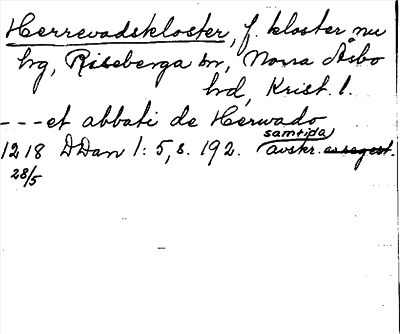 Herrevadskloster, f. kloster nu
hg, Riseberga sn, Norra Åsbo
hd, Krist. l.
---et abbati de Herwado
samtida
1218 DDan 1:5, s. 192. avskr. as regest.
28/5